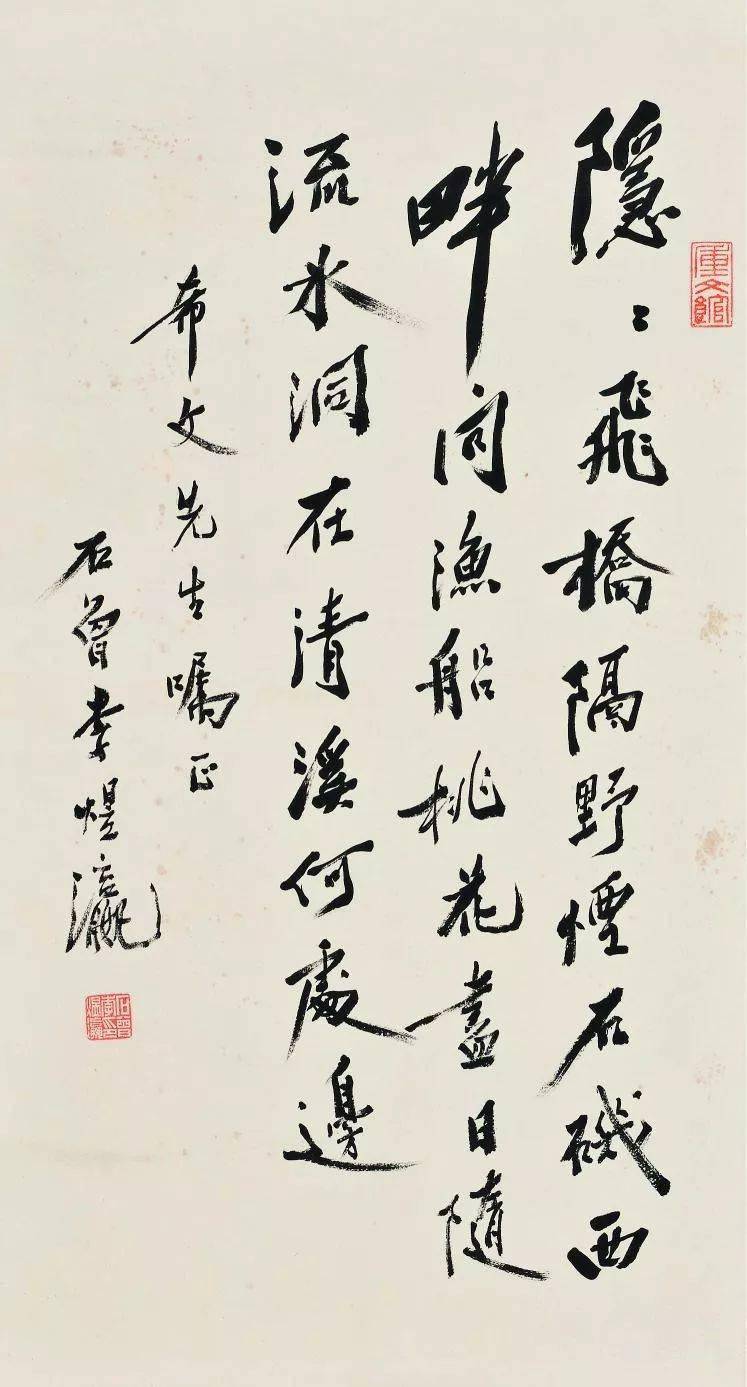 隱〻飛橋隔野煙石磯西
畔問漁船桃花盡日隨
流水洞在清溪何處邊
希文先生囑正
石曾李煜瀛